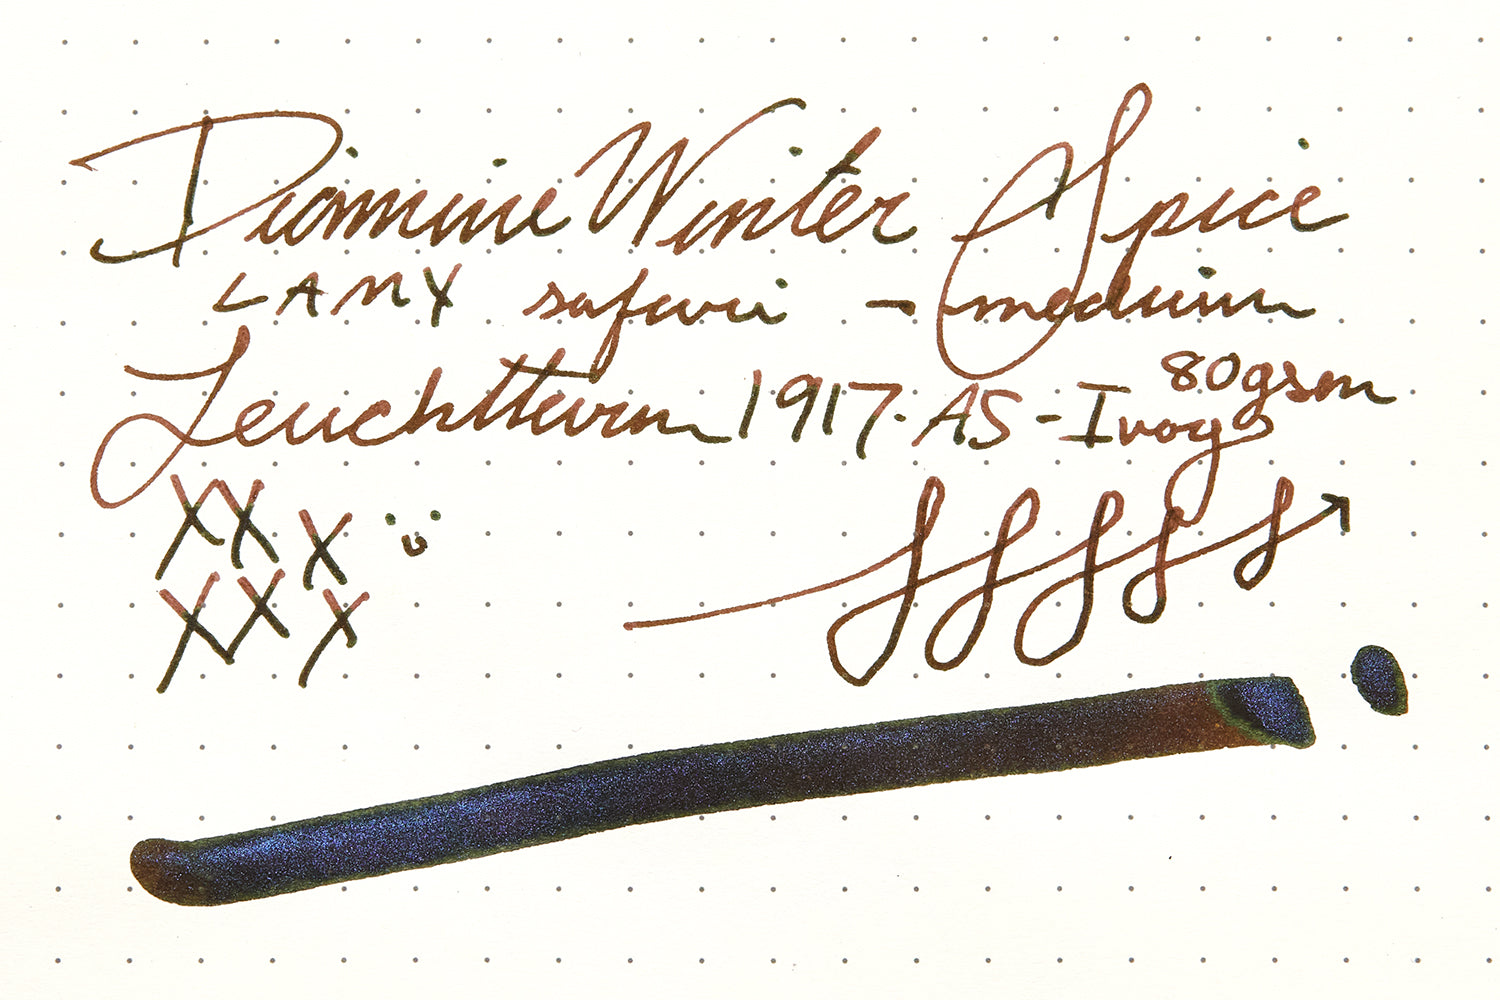 Diamine Winter Spice
LAMY safari - medium
Leuchtturm 1917 · A5 - Ivory 80gsm
XX X
XX X